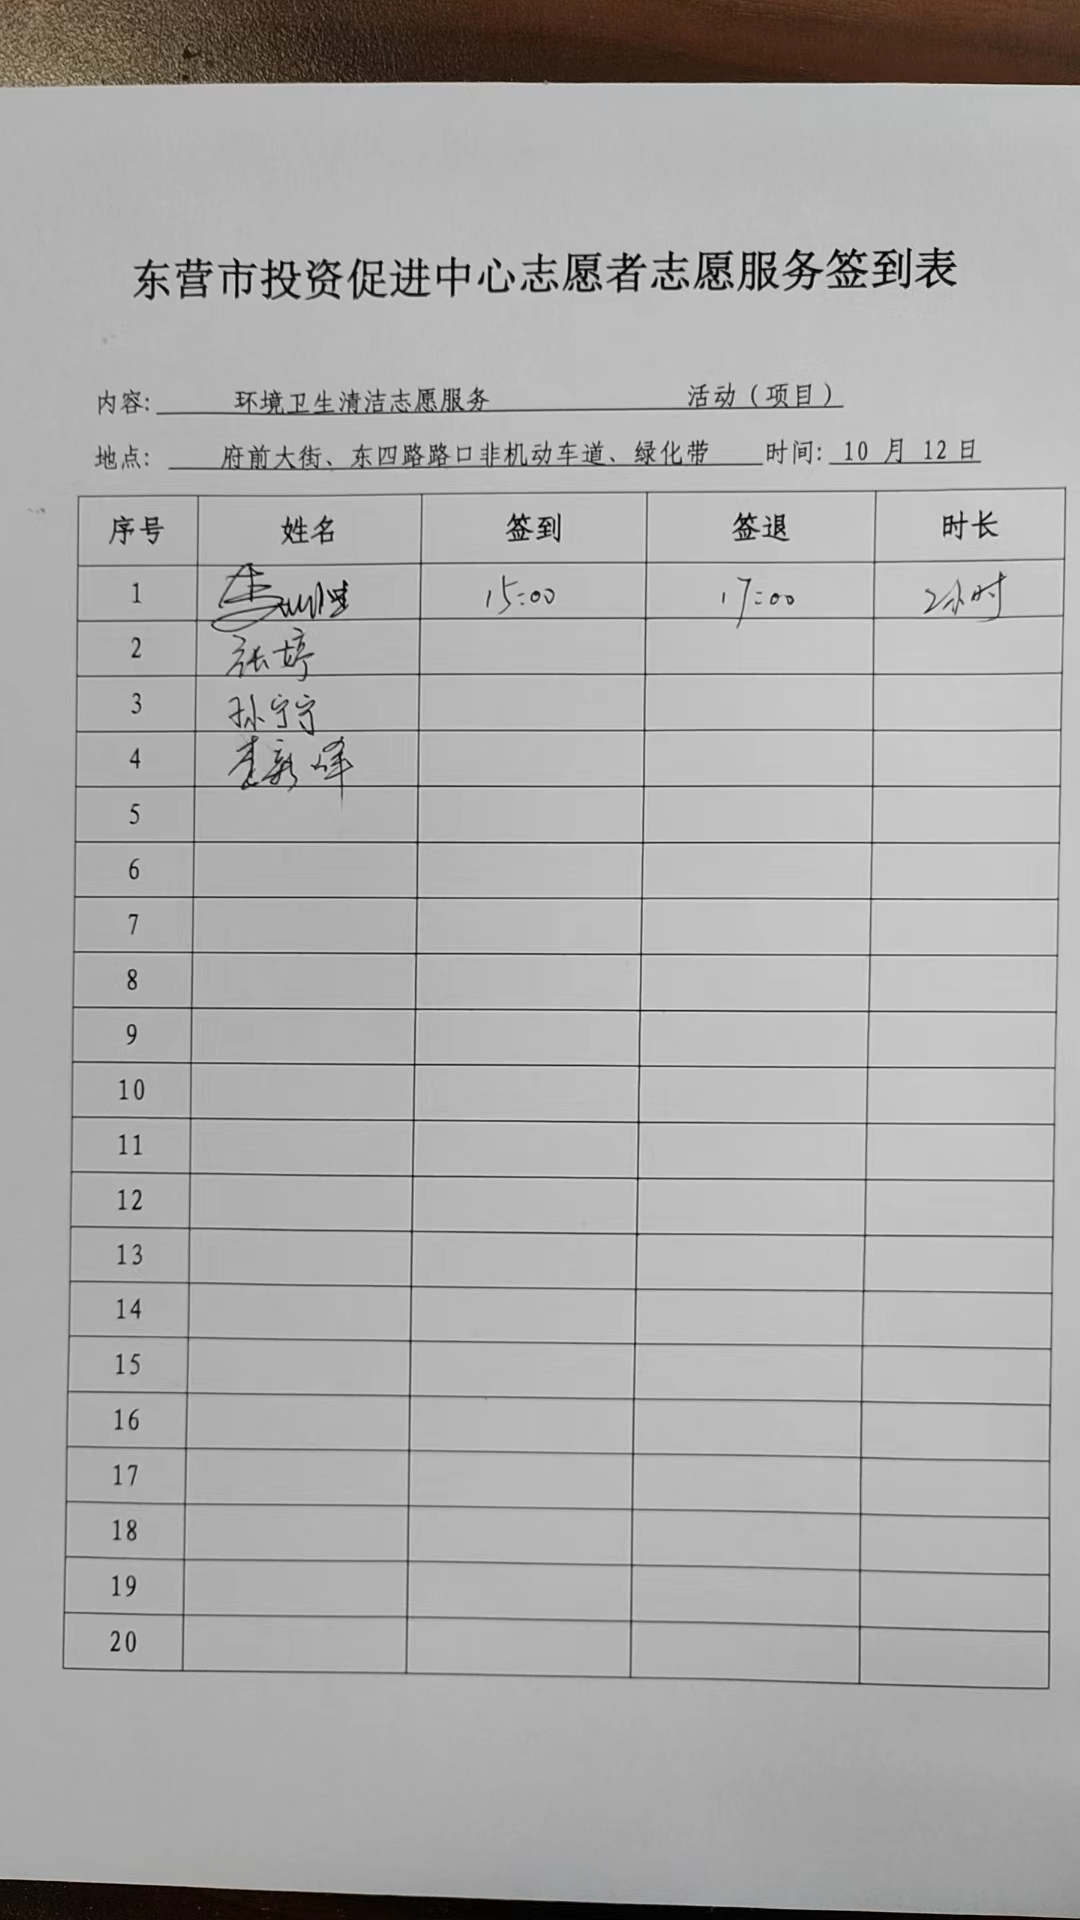 东营市投资促进中心志愿者志愿服务签到表
内容: 环境卫生清洁志愿服务 活动（项目）
地点: 府前大街、东四路路口非机动车道、绿化带 时间: 10 月 12 日
序号 姓名 签到 签退 时长
1 15:00 17:00 2小时
2 张婷
3 孙宁宁
4 新峰
5
6
7
8
9
10
11
12
13
14
15
16
17
18
19
20